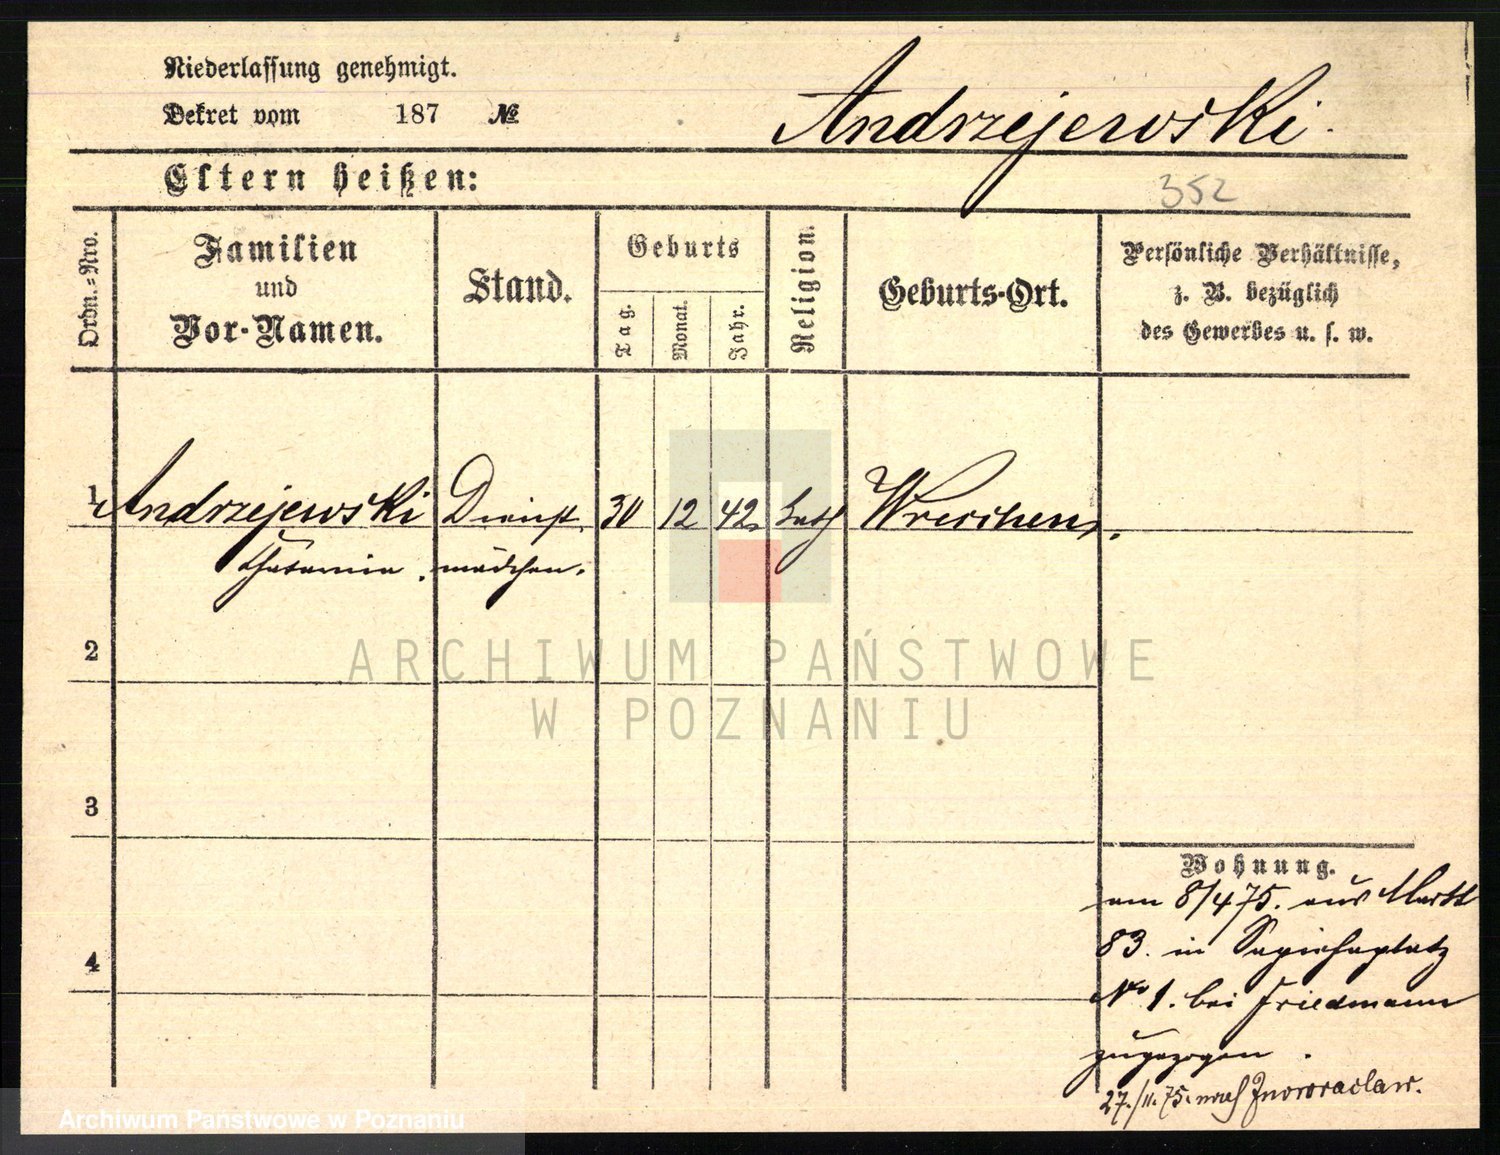 Niederlassung genehmigt.
Dekret vom 187 №
Andrzejewski.
Eltern heißen:
352
Ordn.-Nro.
Familien
und
Vor-Namen.
Stand.
Geburts
Tag.
Monat.
Jahr.
Religion.
Geburts-Ort.
Persönliche Verhältnisse,
z. B. bezüglich
des Gewerbes u. s. w.
1 Andrzejewski Dienst 30 12 42 kath Wreschen.
mädchen.
2
ARCHIWUM PAŃSTWOWE
W POZNANIU
3
Wohnung.
am 8/4 75. aus Markt
83. in Sapiehaplatz
4
No 1. bei Friedmann
zugezogen.
27./11. 75. nach Inowraclaw.
Archiwum Państwowe w Poznaniu